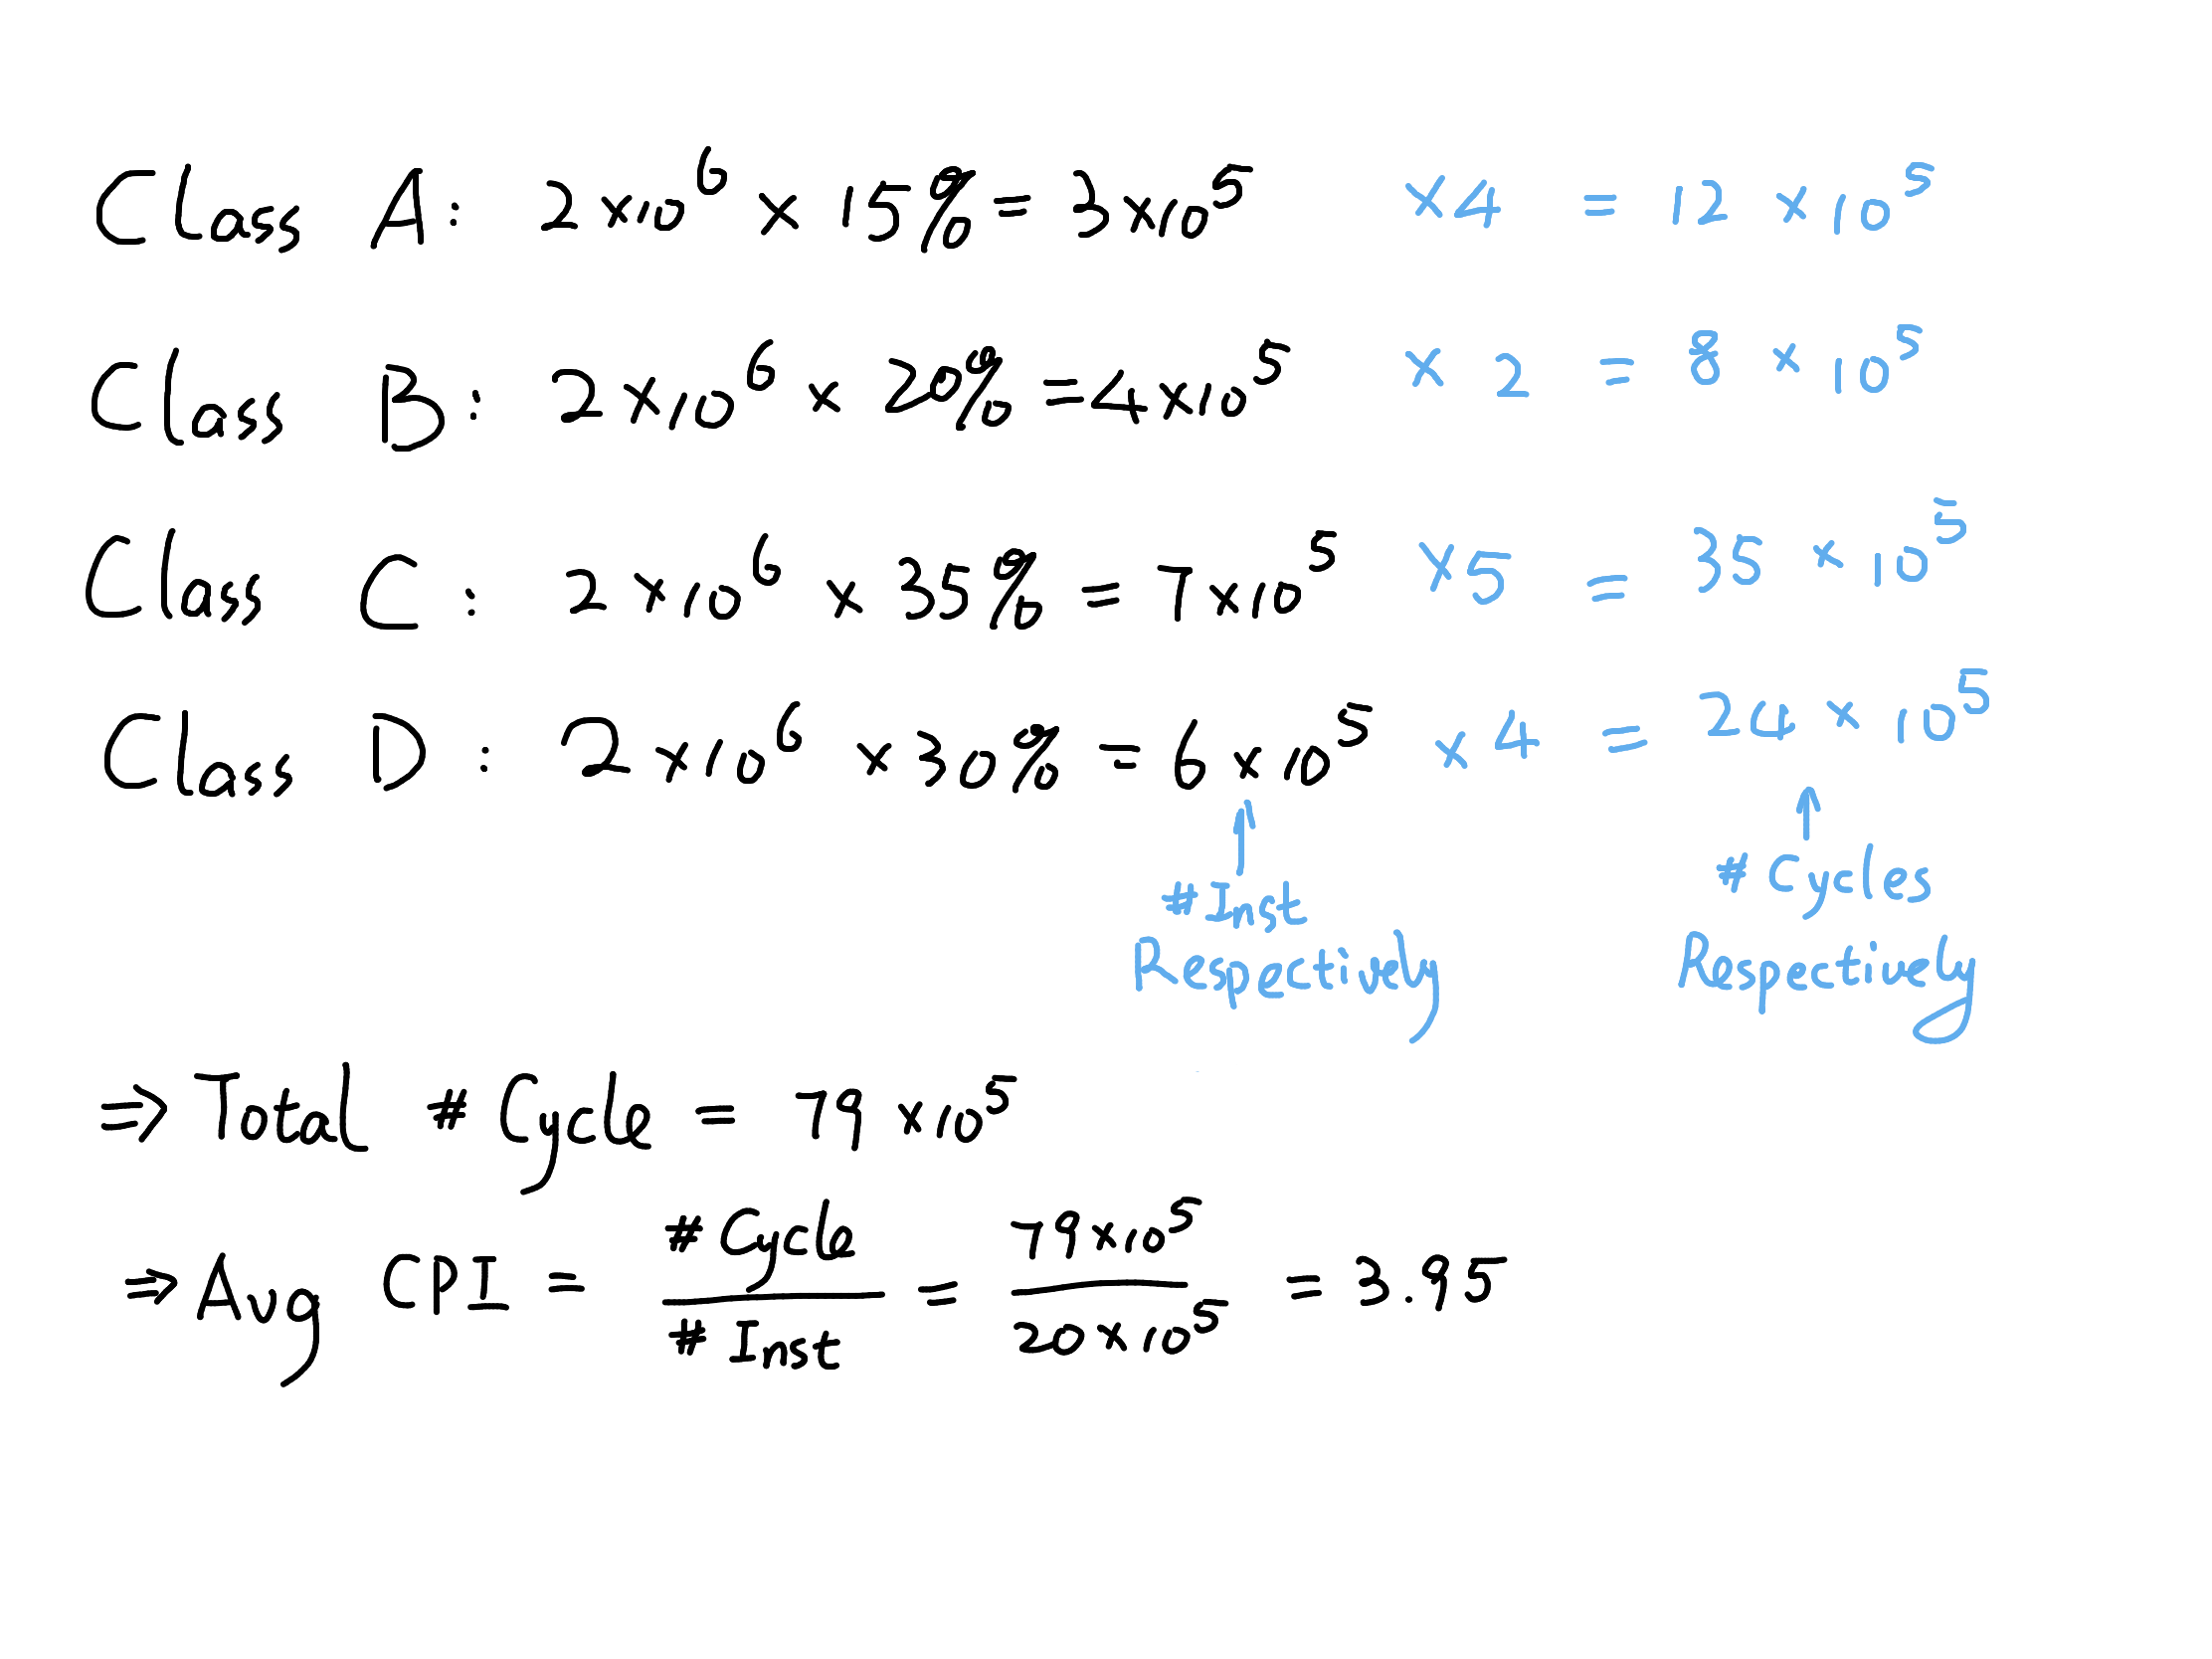 Class A: 2×10⁶ × 15% = 3×10⁵ ×4 = 12 ×10⁵
Class B: 2×10⁶ × 20% = 4×10⁵ × 2 = 8 × 10⁵
Class C: 2×10⁶ × 35% = 7×10⁵ ×5 = 35 × 10⁵
Class D: 2×10⁶ ×30% = 6×10⁵ ×4 = 24 × 10⁵
↑ ↑
#Inst # Cycles
Respectively Respectively
⇒ Total # Cycle = 79 ×10⁵
⇒ Avg CPI = # Cycle / # Inst = 79×10⁵ / 20×10⁵ = 3.95